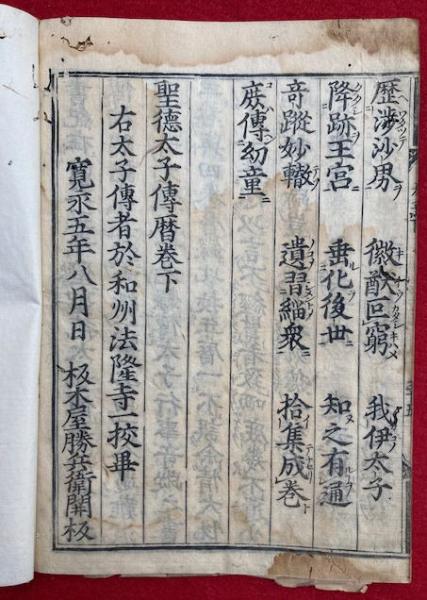 歴渉沙界 徽猷叵窮 我伊太子
降跡王宮 垂化後世 知之有通
奇蹤妙轍 遺習緇衆 拾集成巻
庶傳幼童
聖徳太子傳暦巻下
右太子傳者於和州法隆寺一挍畢
寛永五年八月日 板木屋勝兵衛開板